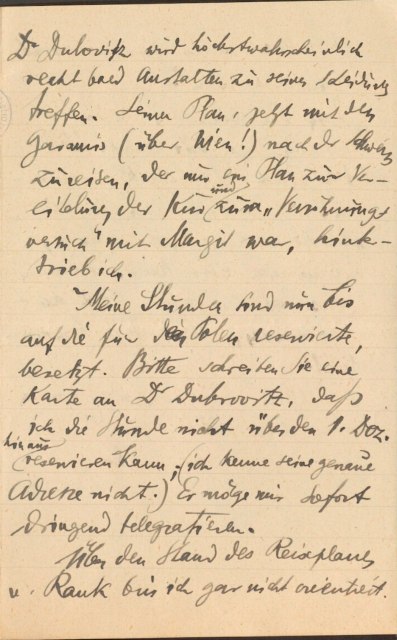 Dr Dubovitz wird höchstwahrscheinlich
recht bald Anstalten zu seiner Scheidung
treffen. Seinen Plan, jetzt mit den
Garamis (über Wien!) nach der Schweiz
zu reisen, der nur ein Plan zur Ver-
eitelung der Kur und zum „Versöhnungs-
versuch" mit Margit war, hinter-
trieb ich.
Meine Stunden sind nun bis
auf die für den Polen reservierte,
besetzt. Bitte schreiben Sie eine
Karte an Dr Dubrovitz, daß
ich die Stunde nicht über den 1. Dez.
hinaus reservieren kann, (ich kenne seine genaue
Adresse nicht.) Er möge mir sofort
dringend telegrafieren.
Über den Stand des Reiseplanes
u. Rank bin ich gar nicht orientiert.